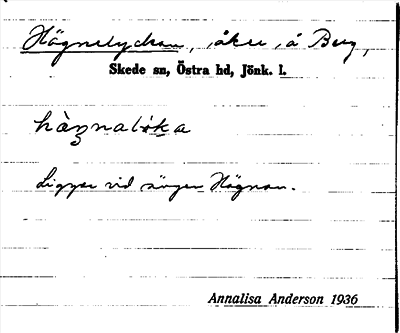 Högnelyckan, åker å Berg,
Skede sn, Östra hd, Jönk. l.
Ligger vid ängen Högnan.
Annalisa Anderson 1936